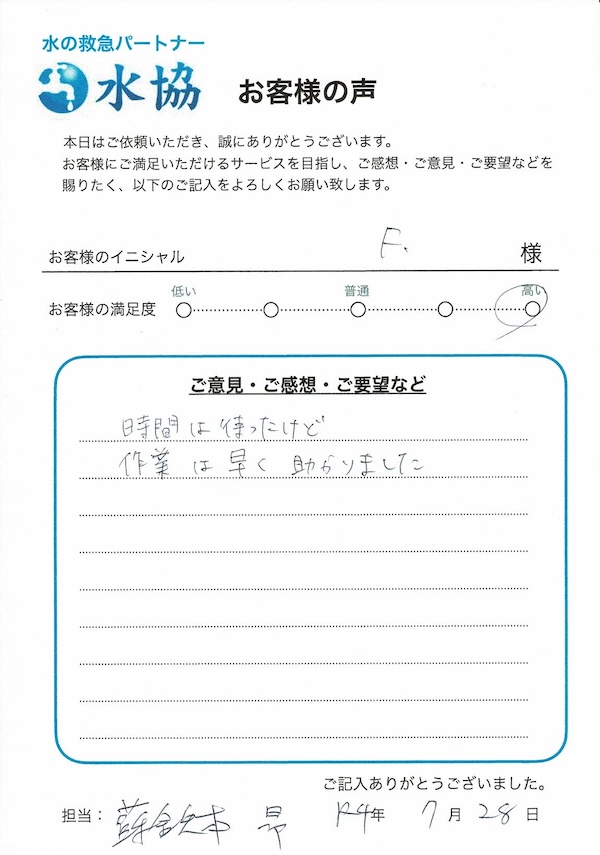 水の救急パートナー
水協 お客様の声
本日はご依頼いただき、誠にありがとうございます。
お客様にご満足いただけるサービスを目指し、ご感想・ご意見・ご要望などを
賜りたく、以下のご記入をよろしくお願い致します。
お客様のイニシャル F. 様
低い 普通 高い
お客様の満足度
ご意見・ご感想・ご要望など
時間は待ったけど
作業は早く 助かりました
ご記入ありがとうございました。
担当： 昂 R4年 7月28日